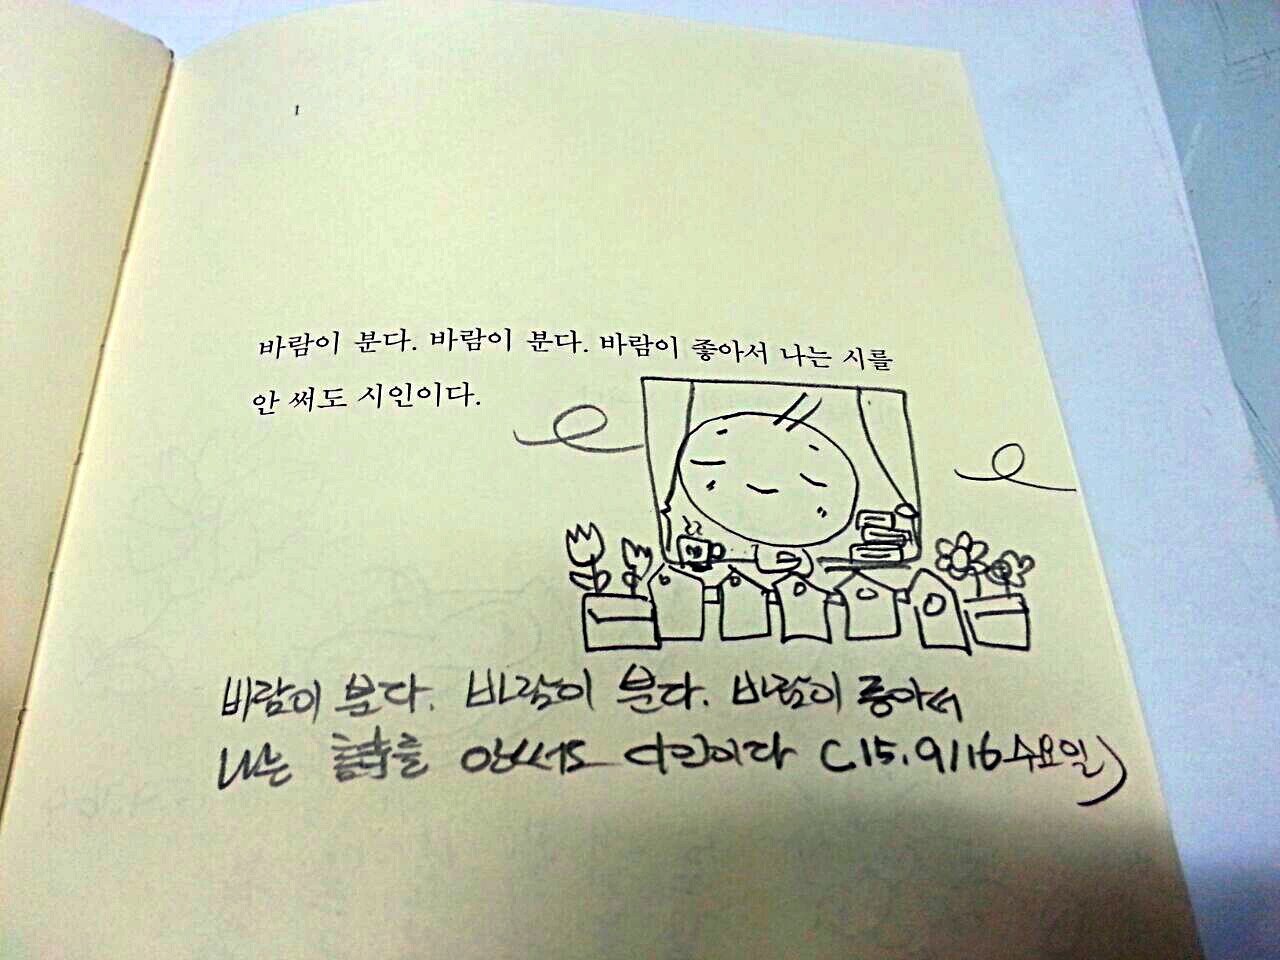 1
바람이 분다. 바람이 분다. 바람이 좋아서 나는 시를
안 써도 시인이다.
바람이 분다. 바람이 분다. 바람이 좋아서
나는 詩를 안써도 시인이다 ('15. 9/16 수요일)